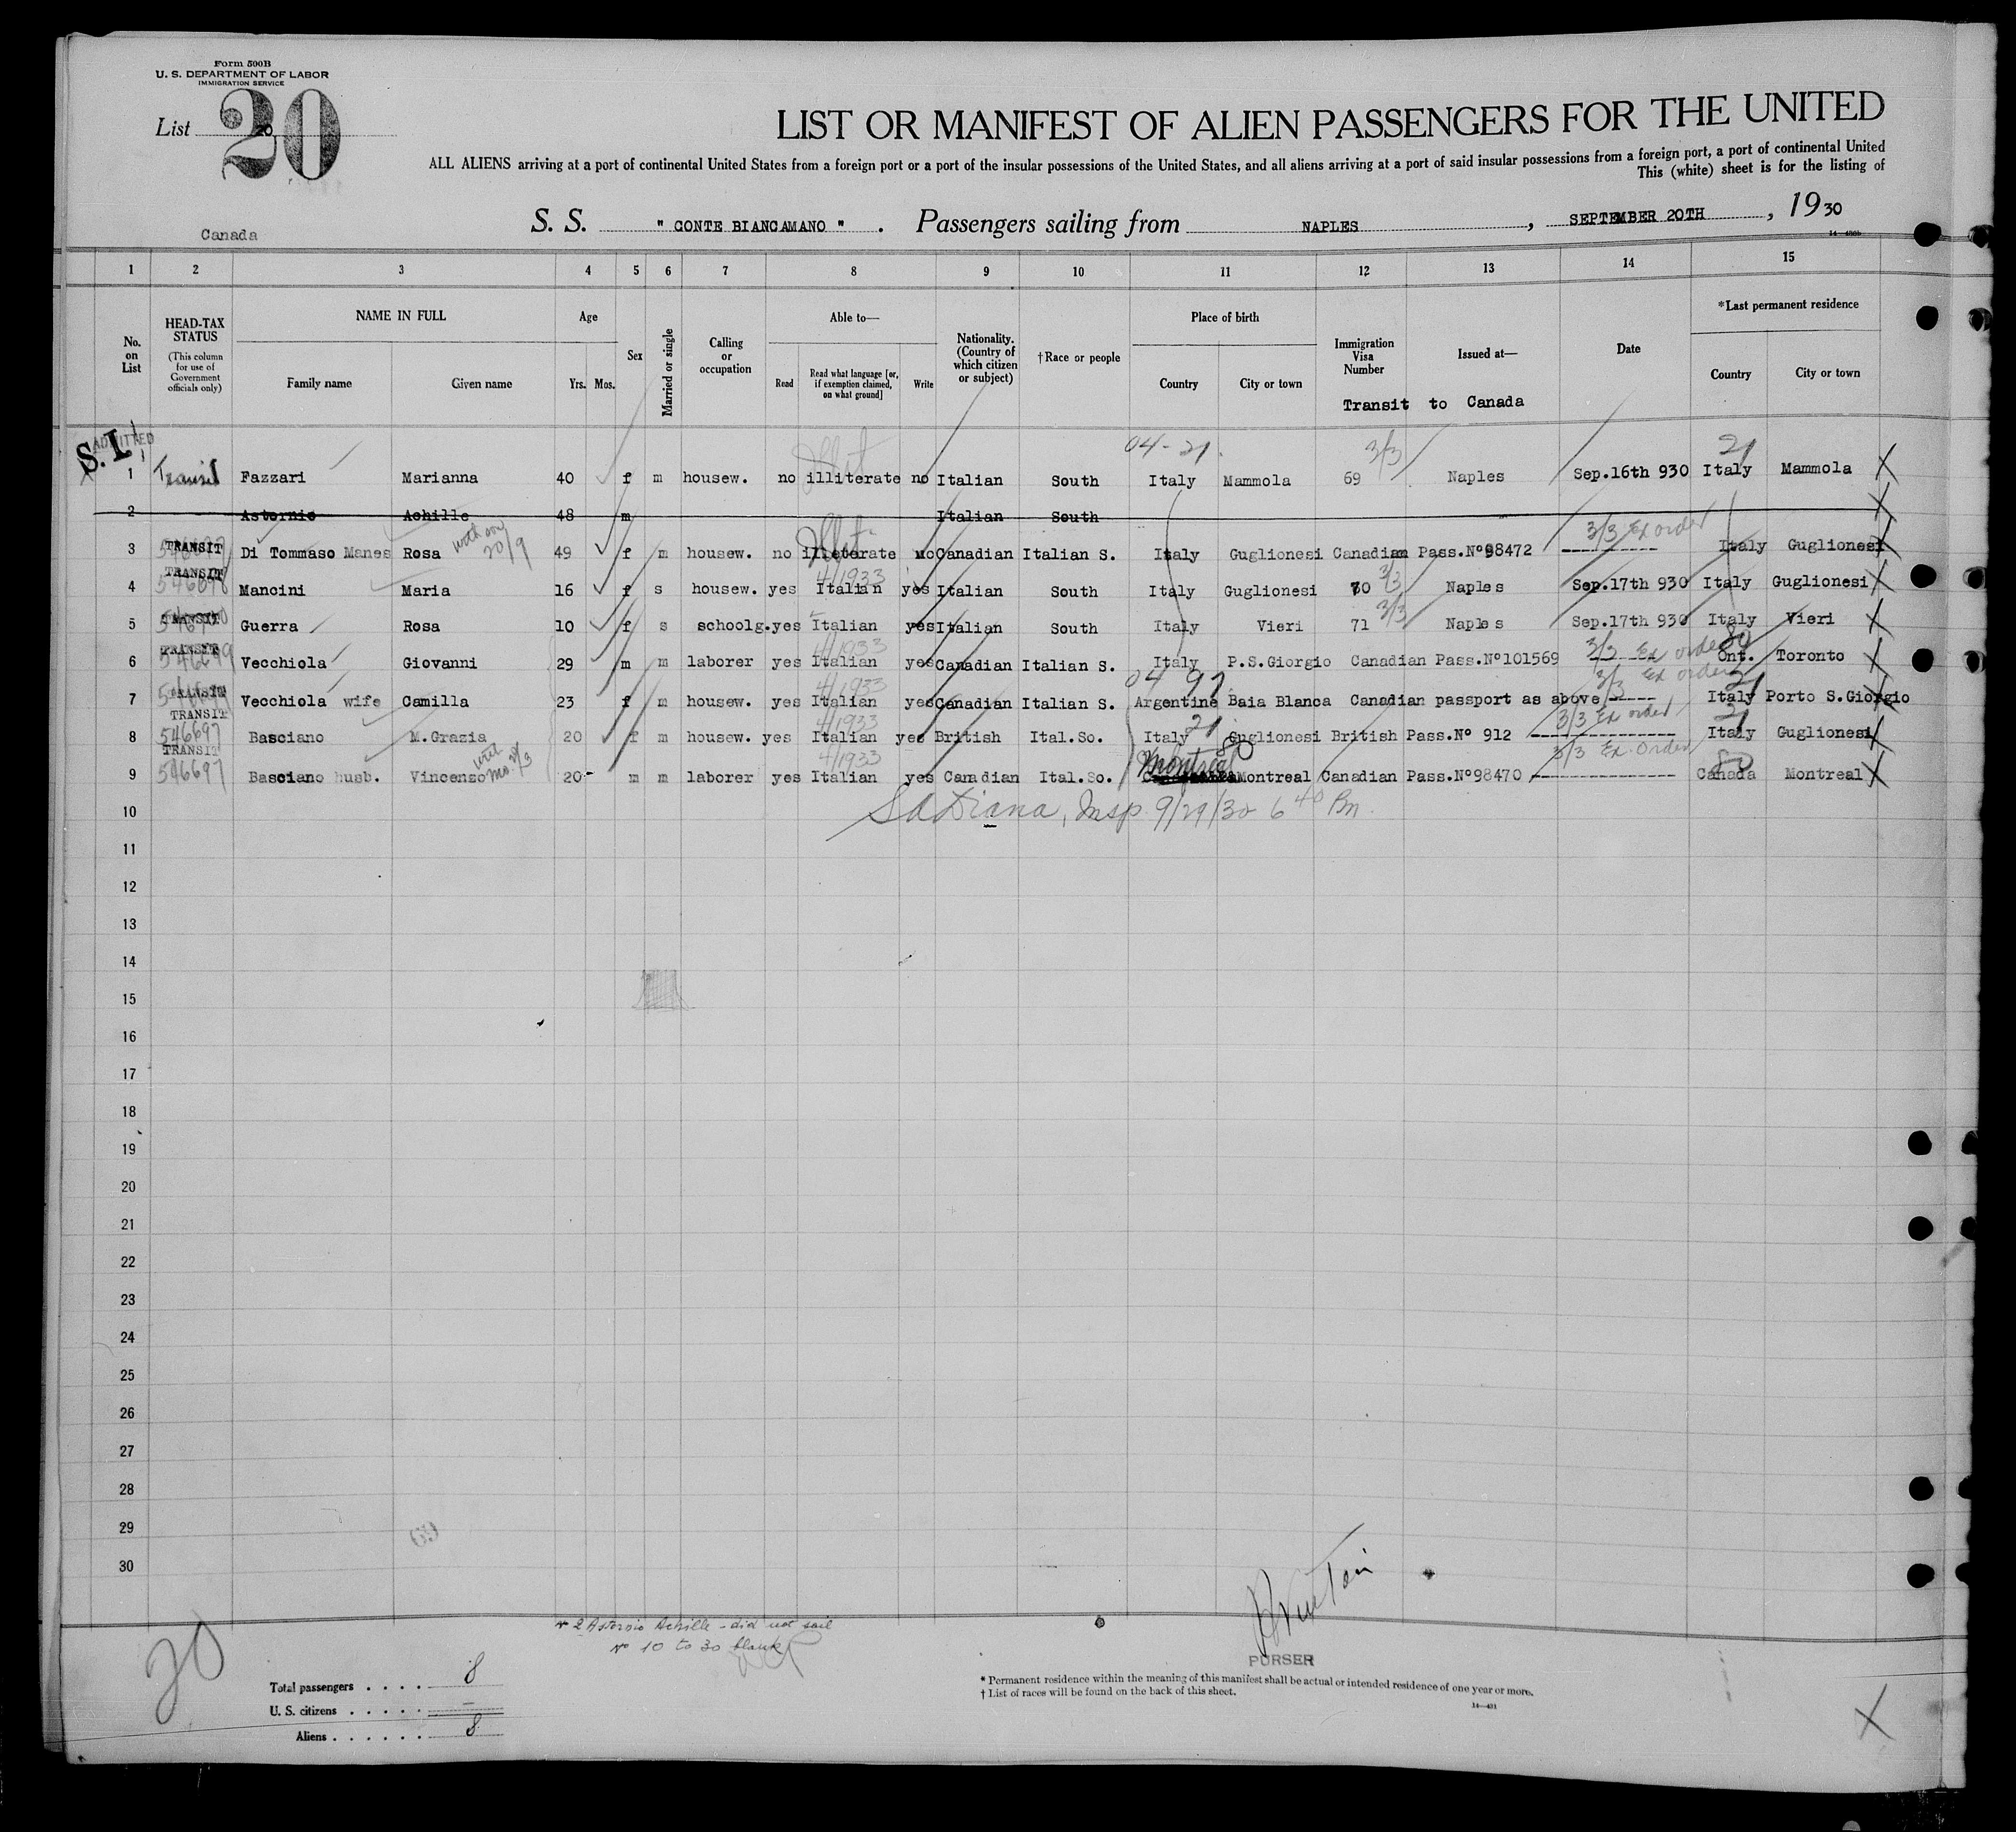 Form 500B
U. S. DEPARTMENT OF LABOR
IMMIGRATION SERVICE
List 20
20
LIST OR MANIFEST OF ALIEN PASSENGERS FOR THE UNITED
ALL ALIENS arriving at a port of continental United States from a foreign port or a port of the insular possessions of the United States, and all aliens arriving at a port of said insular possessions from a foreign port, a port of continental United
This (white) sheet is for the listing of
S. S. " CONTE BIANCAMANO " . Passengers sailing from NAPLES , SEPTEMBER 20TH , 1930
Canada
1 2 3 4 5 6 7 8 9 10 11 12 13 14 15
No. on List
HEAD-TAX STATUS
(This column for use of Government officials only)
NAME IN FULL
Family name Given name
Age
Yrs. Mos.
Sex
Married or single
Calling or occupation
Able to—
Read Read what language [or, if exemption claimed, on what ground] Write
Nationality. (Country of which citizen or subject)
†Race or people
Place of birth
Country City or town
Immigration Visa Number
Issued at—
Date
*Last permanent residence
Country City or town
Transit to Canada
ADMITTED
S. I.
04-21. 3/3 21
1 Transit Fazzari Marianna 40 f m housew. no illiterate no Italian South Italy Mammola 69 Naples Sep.16th 930 Italy Mammola X
2 Astornio Achille 48 m Italian South X
with son 20/9 Illit 3/3 Ex order
3 TRANSIT 546697 Di Tommaso Manes Rosa 49 f m housew. no illeterate no Canadian Italian S. Italy Guglionesi Canadian Pass.Nº98472 Italy Guglionesi X
4/1933 3/3
4 TRANSIT 546698 Mancini Maria 16 f s housew. yes Italian yes Italian South Italy Guglionesi 70 Naples Sep.17th 930 Italy Guglionesi X
3/3
5 TRANSIT Guerra Rosa 10 f s schoolg. yes Italian yes Italian South Italy Vieri 71 Naples Sep.17th 930 Italy Vieri X
4/1933 3/3 Ex order 80
6 TRANSIT 546699 Vecchiola Giovanni 29 m m laborer yes Italian yes Canadian Italian S. Italy P.S.Giorgio Canadian Pass.Nº101569 Ont. Toronto X
4/1933 04 91 3/3 Ex order 21
7 TRANSIT 546699 Vecchiola wife Camilla 23 f m housew. yes Italian yes Canadian Italian S. Argentine Baia Blanca Canadian passport as above Italy Porto S.Giorgio
4/1933 21 3/3 Ex order 21
8 TRANSIT 546697 Basciano M.Grazia 20 f m housew. yes Italian yes British Ital.So. Italy Guglionesi British Pass.Nº 912 Italy Guglionesi X
with mo. 20/3 4/1933 Montreal 80 3/3 Ex. Order 80
9 TRANSIT 546697 Basciano husb. Vincenso 20 m m laborer yes Italian yes Canadian Ital.So. Montreal Canadian Pass.Nº98470 Canada Montreal X
10 Diana, Insp 9/29/30 6 40 Pm.
11
12
13
14
15
16
17
18
19
20
21
22
23
24
25
26
27
28
29
30
Nº 2 Astornio Achille - did not sail
Nº 10 to 30 blank
20
PURSER
Total passengers . . . . 8
U. S. citizens . . . . . —
Aliens . . . . . . 8
* Permanent residence within the meaning of this manifest shall be actual or intended residence of one year or more.
† List of races will be found on the back of this sheet.
14—431
X